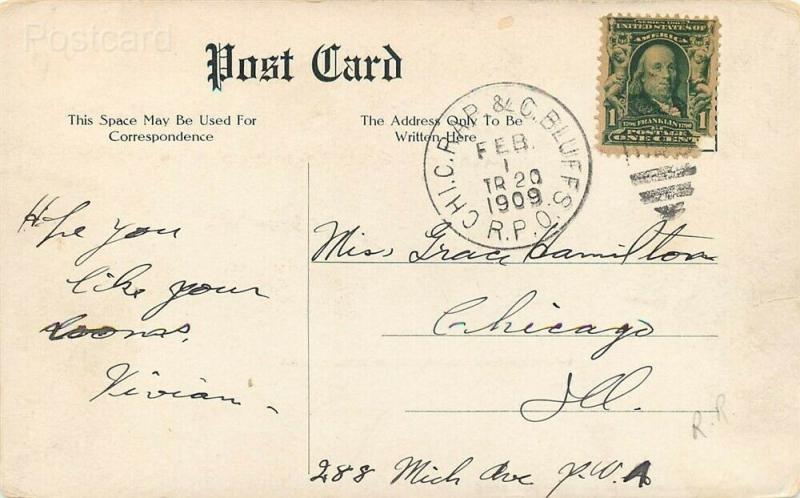 Postcard
Post Card
This Space May Be Used For
Correspondence
The Address Only To Be
Written Here
SERIES 1902
UNITED STATES OF
AMERICA
1 1706 FRANKLIN 1790 1
POSTAGE
ONE CENT
CHI.C.RAP. & C.BLUFFS.
FEB
1
TR 20
1909
R.P.O.
Hope you
like your
rooms,
Vivian -
Miss Grace Hamilton
Chicago
Ill.
288 Mich Ave
R.R.